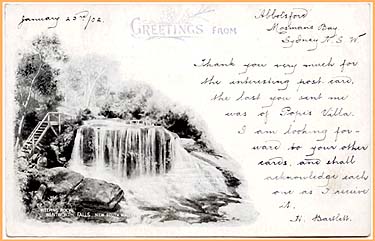 January 25th/02.
GREETINGS FROM
Abbotsford
Mosmans Bay.
Sydney N. S. W.
Thank you very much for
the interesting post card,
the last you sent me
was of Popes Villa.
I am looking for-
ward to your other
cards, and shall
acknowledge each
one as I receive
it.
H. Bartlett.
WEEPING ROCK,
WENTWORTH FALLS, NEW SOUTH WALES